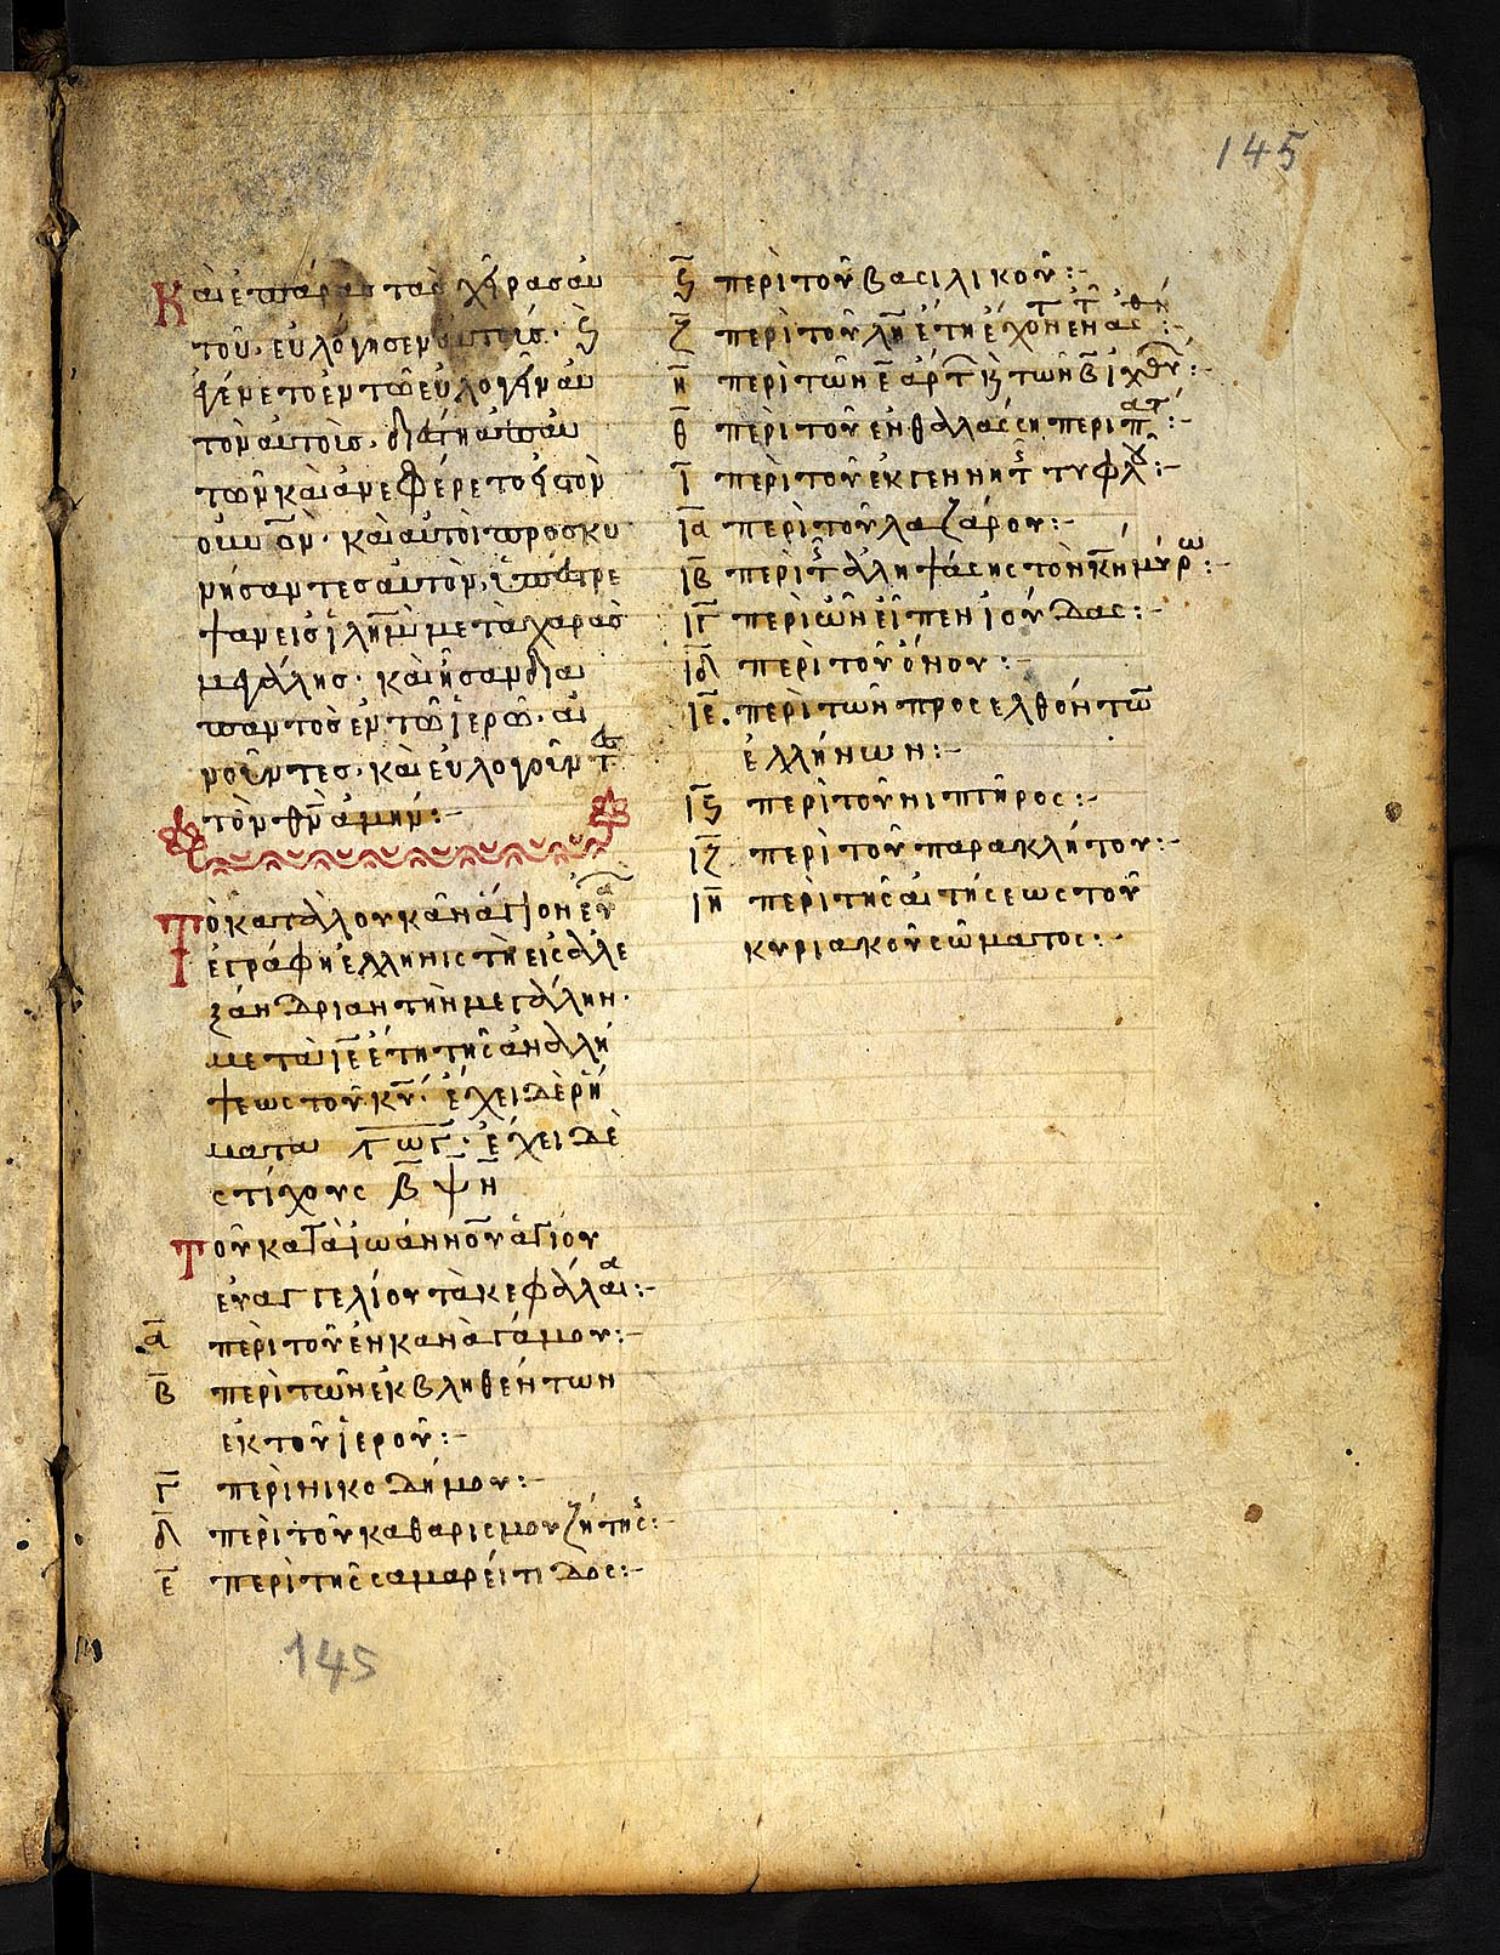 145
Καὶ ἐπάρας τὰς χεῖρας αὐ
τοῦ· εὐλόγησεν αὐτοίς· ϗ
ἐγένετο ἐν τῶ εὐλογεῖν αὐ
τὸν αὐτοὶς· διέστη ἀπ' αὐ
τῶν καὶ ἀνεφέρετο εἰς τὸν
οὐνον· καὶ αὐτοὶ προσκυ
νήσαντες αὐτὸν, ὑπέστρε
ψαν εἰς ἰλημ μετὰ χαρὰς
μεγάλης· καὶ ἦσαν δια
παντὸς ἐν τῶ ἱερῶ· αἰ
νοῦντες· καὶ εὐλογοῦντς
τὸν θν ἀμήν:–
Τὸ κατὰ λουκᾶν ἅγιον εὐα
ἐγράφη ἑλληνιστὴ εἰς ἀλε
ξάνδριαν τὴν μεγάλην·
μετὰ ιε ἔτη τῆς ἀναλή
ψεως τοῦ κυ· ἔχει δὲ ῥή
ματα γωγ· ἔχει δὲ
στίχους β ψ η
Τοῦ κατὰ ἰωάννου ἁγίου
εὐαγγελίου τὰ κεφάλαια:–
α περὶ τοῦ ἐν κανὰ γάμου:–
β περὶ τῶν ἐκβληθέντων
ἐκ τοῦ ἱεροῦ:–
γ περὶ νικοδήμου:–
δ περὶ τοῦ καθαρισμου ζητης:–
ε περὶ τῆς σαμαρείτιδος:–
145
ϛ περὶ τοῦ βασιλικοῦ:–
ζ περὶ τοῦ λη ἔτη ἔχοντ ἐν τ ἀσθεν:–
η περὶ τῶν ε ἄρτ ϗ τῶν β ἰχθυ:–
θ περὶ τοῦ ἐν θαλάσση περιπατ:–
ι περὶ τοῦ ἐκ γεννητς τυφλου:–
ια περὶ τοῦ λαζάρου:–
ιβ περὶ τς ἀληψάσης τὸν κν μύρω:–
ιγ περὶ ὧν εἶπεν ἰούδας:–
ιδ περὶ τοῦ ὄνου:–
ιε. περὶ τῶν προσελθόντω
ἑλλήνων:–
ιϛ περὶ τοῦ νιπτῆρος:–
ιζ περὶ τοῦ παρακλήτου:–
ιη περὶ τῆς αἰτήσεως τοῦ
κυριακοῦ σώματος:–